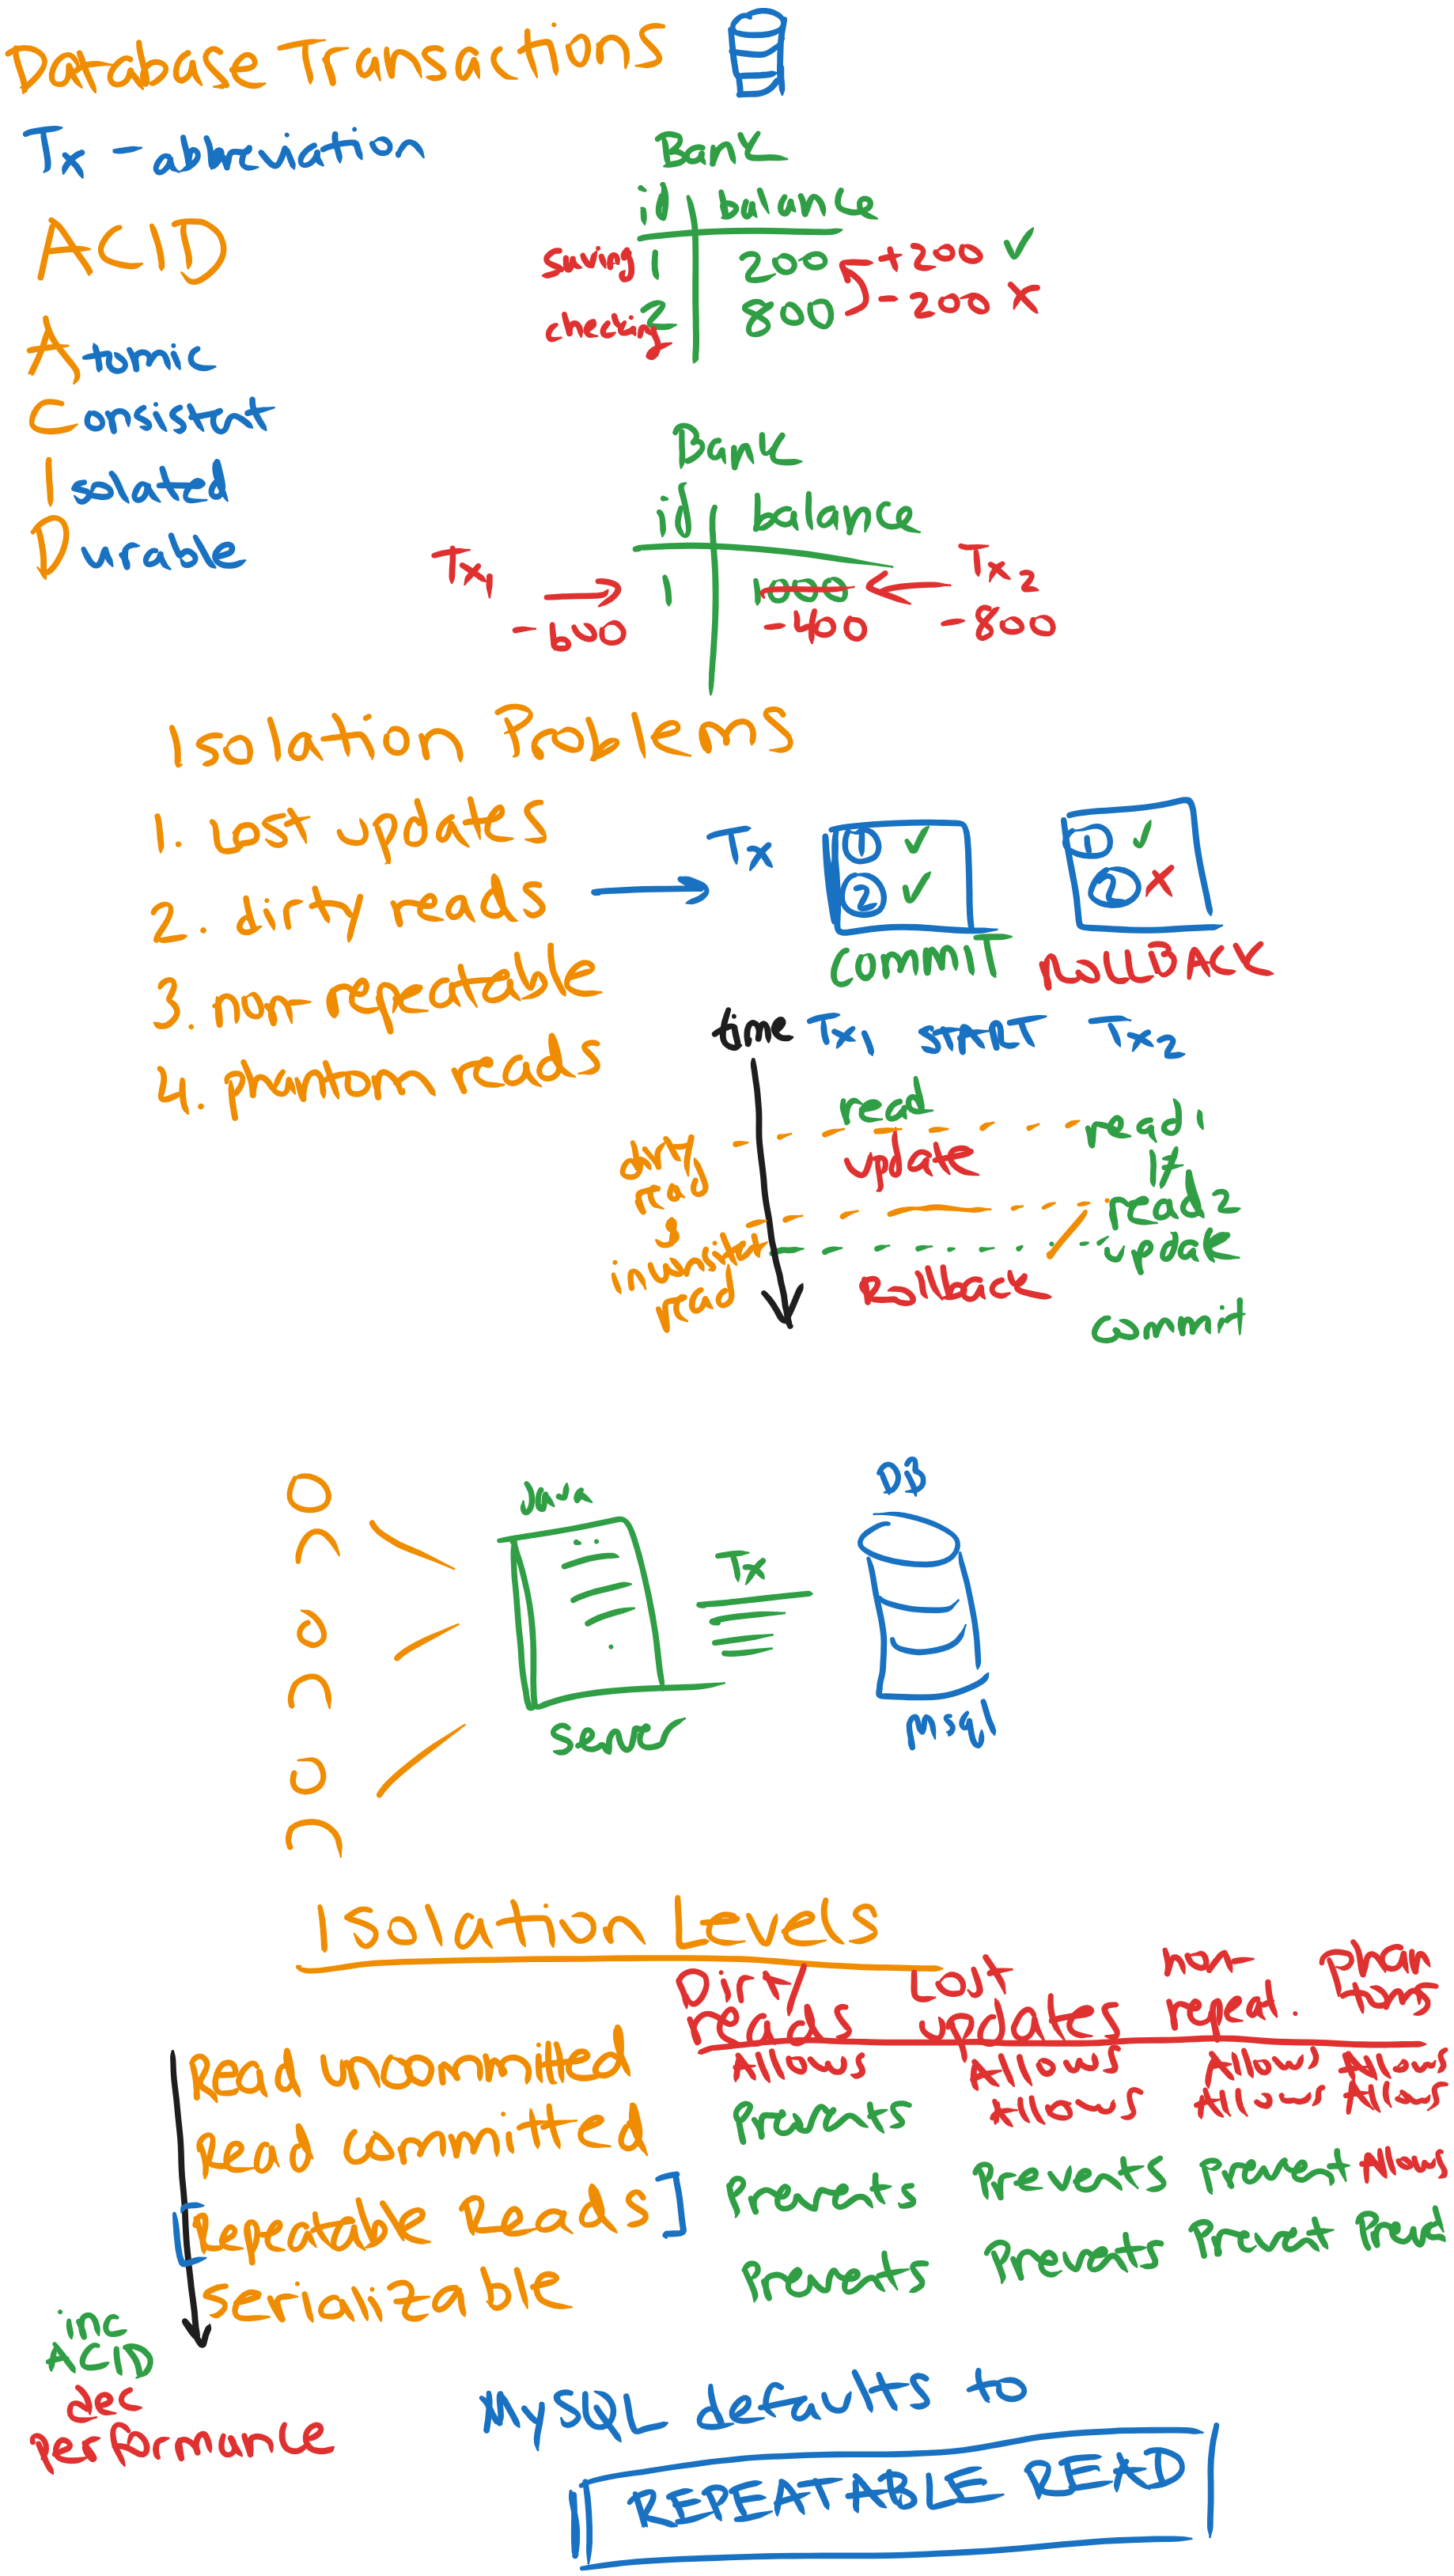 Database Transactions
Tx - abbreviation
ACID
Atomic
Consistent
Isolated
Durable
Bank
id balance
saving 1 200 +200 ✓
checking 2 800 -200 X
Bank
id balance
Tx1 1 1000 Tx2
-600 -400 -800
Isolation Problems
1. lost updates
2. dirty reads
3. non-repeatable
4. phantom reads
Tx
1 ✓
2 ✓
COMMIT
1 ✓
2 X
ROLLBACK
time Tx1 START Tx2
read
read 1
dirty
read
update
≠
read 2
&
update
read
Rollback
commit
Java
DB
Tx
Server
msql
Isolation Levels
Dirty reads Lost updates non-repeat. phantoms
Read uncommitted Allows Allows Allows Allows
Read committed Prevents Allows Allows Allows
[Repeatable Reads] Prevents Prevents Prevent Allows
Serializable Prevents Prevents Prevent
inc
ACID
dec
performance
MySQL defaults to
REPEATABLE READ